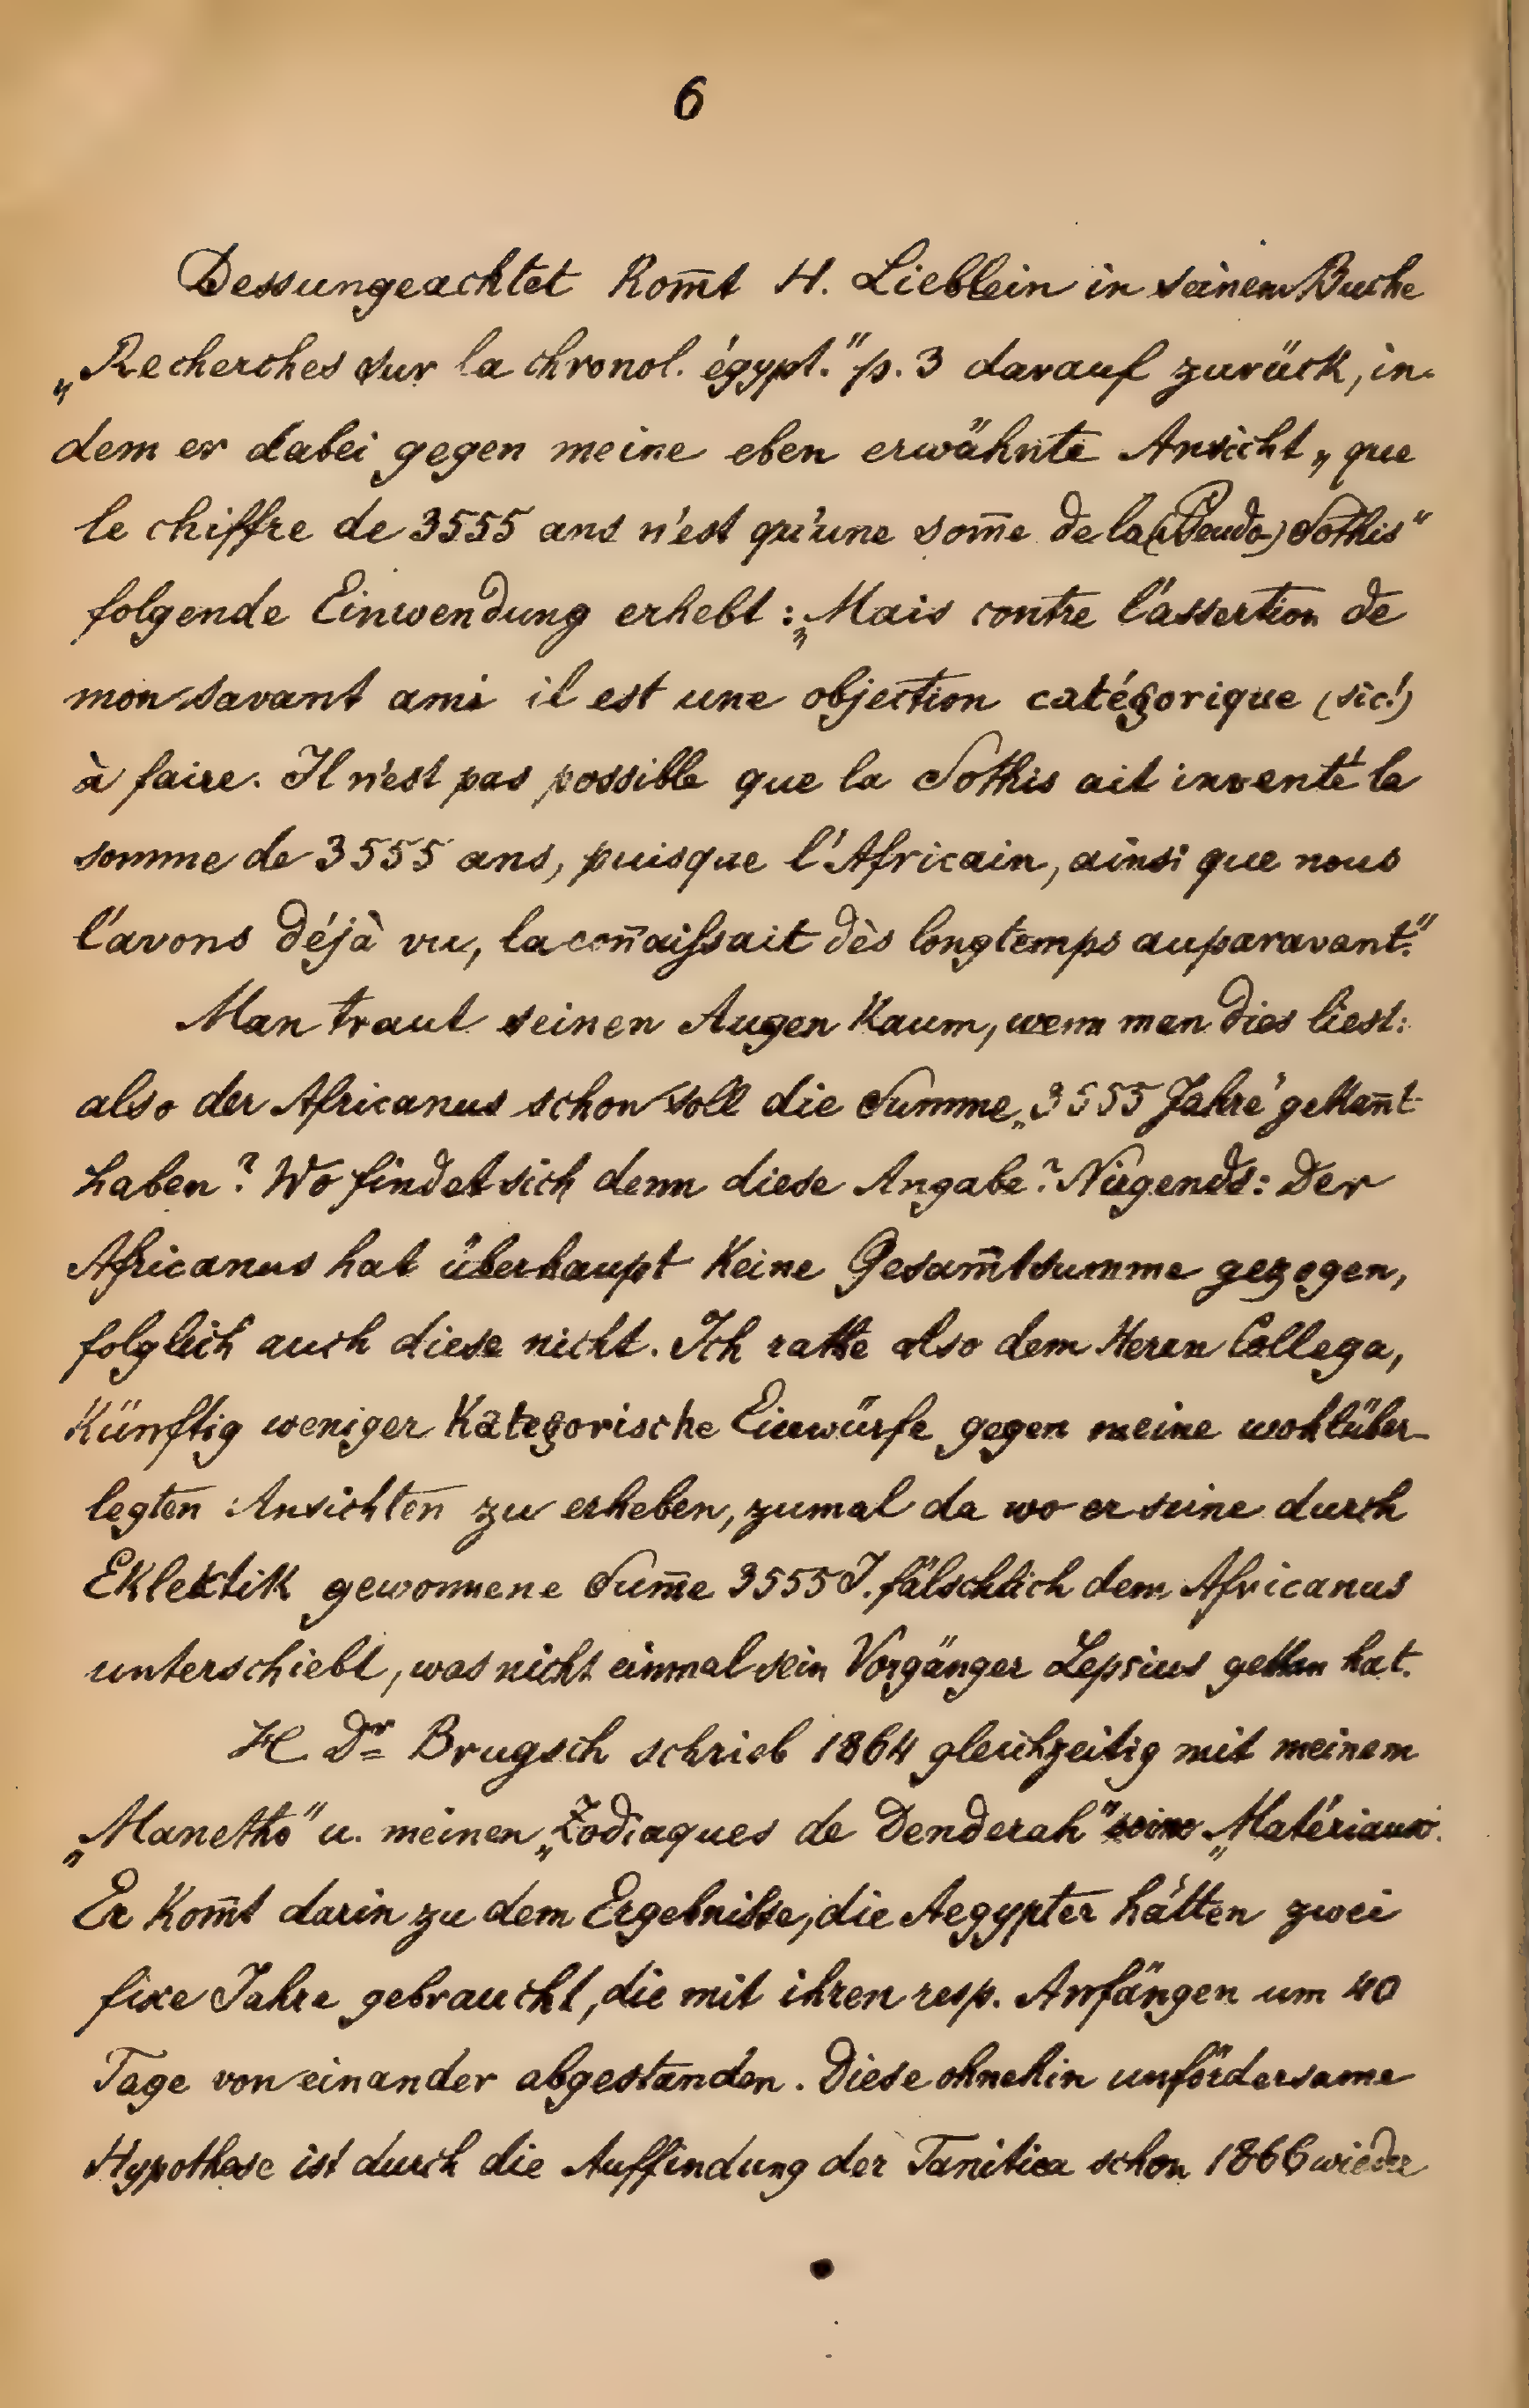 6
Dessungeachtet kom̄t H. Lieblein in seinem Buche
„Recherches sur la chronol. égypt." p. 3 darauf zurück, in-
dem er dabei gegen meine eben erwähnte Ansicht „que
le chiffre de 3555 ans n'est qu'une som̄e de la (Pseudo-) Sothis"
folgende Einwendung erhebt: „Mais contre l'assertion de
mon savant ami il est une objection catégorique (sic!)
à faire. Il n'est pas possible que la Sothis ait inventé la
somme de 3555 ans, puisque l'Africain, ainsi que nous
l'avons déjà vu, la con̄aiſsait dès longtemps auparavant."
Man traut seinen Augen kaum, wenn man dies liest:
also der Africanus schon soll die Summe „3555 Jahre" gekan̄t
haben? Wo findet sich denn diese Angabe? Nirgends: Der
Africanus hat überhaupt keine Gesam̄tsumme gezogen,
folglich auch diese nicht. Ich rathe also dem Herrn Collega,
künftig weniger kategorische Einwürfe gegen meine wohlüber-
legten Ansichten zu erheben, zumal da wo er seine durch
Eklektik gewonnene Sum̄e 3555 J. fälschlich dem Africanus
unterschiebt, was nicht einmal sein Vorgänger Lepsius gethan hat.
H Dr Brugsch schrieb 1864 gleichzeitig mit meinem
„Manetho" u. meinen „Zodiaques de Denderah" seine „Matériaux".
Er kom̄t darin zu dem Ergebniſse, die Aegypter hätten zwei
fixe Jahre gebraucht, die mit ihren resp. Anfängen um 40
Tage von einander abgestanden. Diese ohnehin unfördersame
Hypothese ist durch die Auffindung der Tanitica schon 1866 wieder